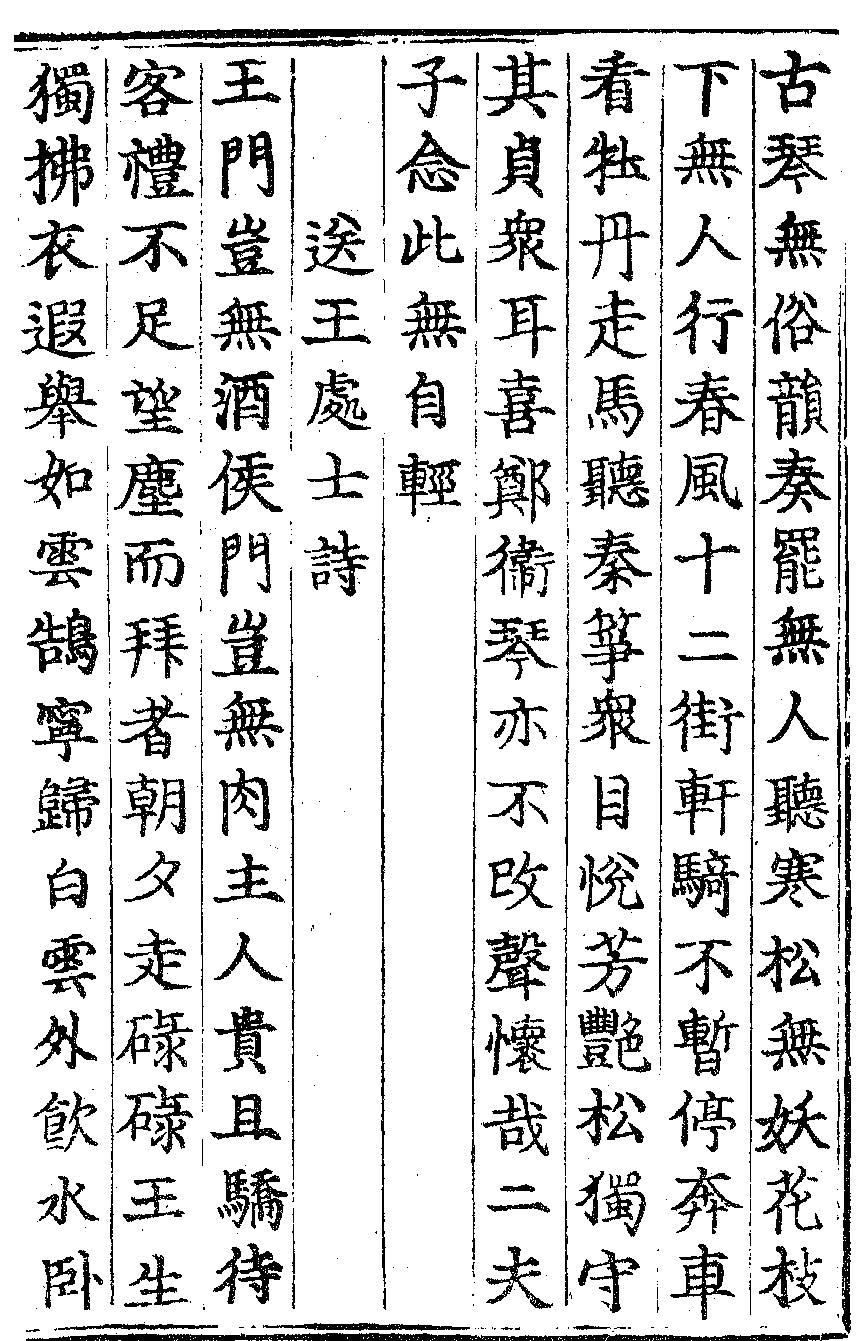 古琴無俗韻奏罷無人聽寒松無妖花枝
下無人行春風十二街軒騎不暫停奔車
看牡丹走馬聽秦箏衆目悅芳艷松獨守
其貞衆耳喜鄭衞琴亦不改聲懷哉二夫
子念此無自輕
送王處士詩
王門豈無酒侯門豈無肉主人貴且驕待
客禮不足望塵而拜者朝夕走碌碌王生
獨拂衣遐舉如雲鵠寧歸白雲外飮水卧